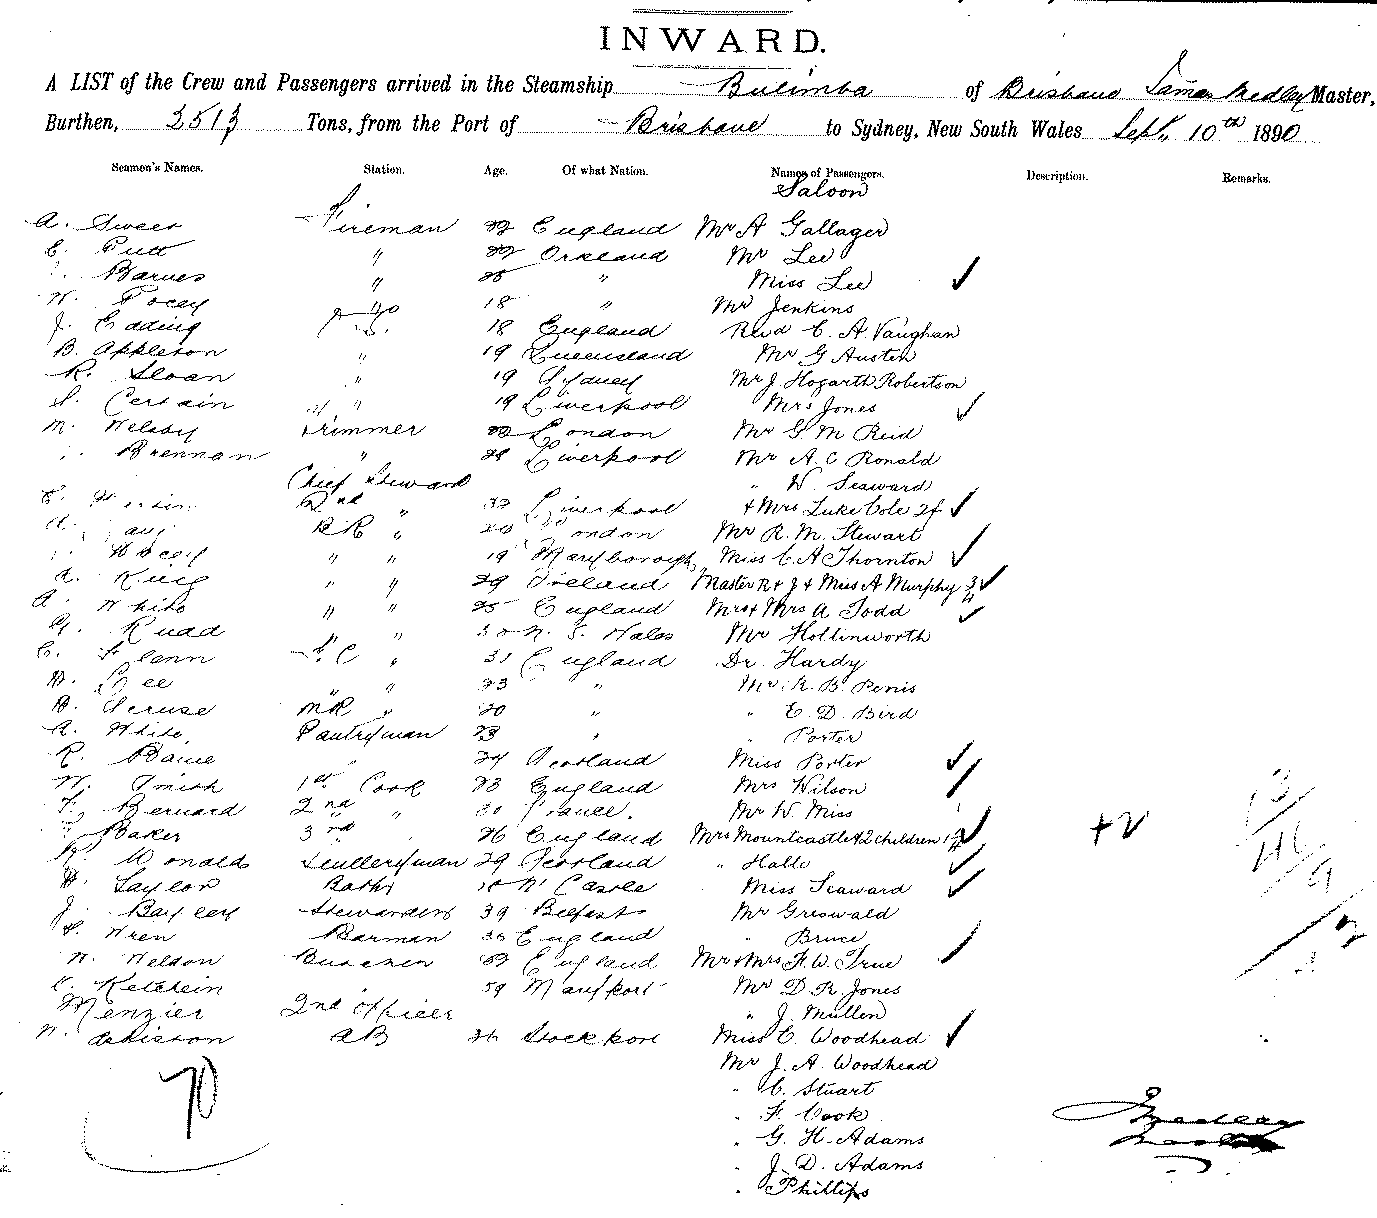 INWARD.
A LIST of the Crew and Passengers arrived in the Steamship Bulimba of Brisbane James Medley Master,
Burthen, 2513 Tons, from the Port of Brisbane to Sydney, New South Wales Sept. 10th 1890
Seamen's Names. Station. Age. Of what Nation. Names of Passengers. Description. Remarks.
Saloon
A. Fireman England Mr A Gallager
C. Putt " Orkland Mr Lee
Barnes " " Miss Lee
W. Pocey 18 " Mr Jenkins
J. Edding 18 England Revd C. A. Vaughan
B. Appleton " 19 Queensland Mr G Austen
R. Sloan " 19 Sydney Mr J. Hogarth Robertson
S. Certain " 19 Liverpool Mrs Jones
M. Welsby Trimmer London Mr G. M Reid
Brennan " Liverpool Mr A. C Ronald
Chief Steward " W. Seaward
2nd " Liverpool & Mrs Luke Cole
" London Mr R. M. Stewart
" " 19 Maryborough Miss C. A Thornton
A. King " " 29 Ireland Master R & J & Miss A Murphy
A. White " " 25 England Mr & Mrs A Todd
Ruad " " 30 N. S. Wales Mr Hollinworth
C. " 31 England Dr. Hardy
Lee " " 23 " Mr. R. B. Penis
MR " 20 " " E. D. Bird
A. White Pantryman 23 " " Porter
R. 24 Scotland Miss Porter
W. Smith 1st Cook 23 England Mrs Wilson
F. Bernard 2nd " 30 France. Mr W. Miss
Baker 3rd 26 England Mrs Mountcastle & 2 children + V
R. McDonald Sculleryman 29 Scotland " Halle
Taylor Baths N. Castle Miss Seaward
J. Bayley Stewardess 39 Belfast Mr Griswald
S. Wren Barman England " Bruce
W. Nelson England Mr & Mrs F. W. True
C. Ketchein 59 Maryport Mr D. R. Jones
Menzies 2nd Officer " J. Mullen
W. AB 26 Stockport Miss C. Woodhead
70 Mr J. A. Woodhead
" C. Stuart
" F. Cook
" G. H. Adams
" J. D. Adams
" Phillips
J Medley
Master